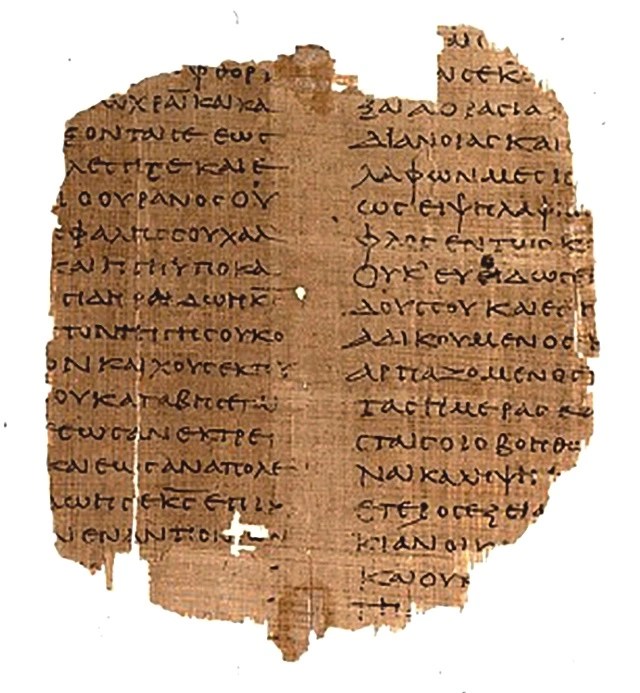 φθορι
ωχραι και κα
ξονται σε εως
λεσητε και ε
ι ο ουρανος ου
εφαλησσουχαλ
και η γη υποκα
σιδηρα δωη κ̅ς̅
τον τηγησσουκο
ον και χους εκ τ
ου καταβησετ
εως αν εκτρει
και εως αν απολε
δωη σε κ̅ς̅ επι
ν εναντιον
αι σε κ
ξαι αορασια
διανοιας και
λαφων μεσ
ως ει ψηλαφ
φλος εν τω σκ
ουκ ευ δωσε
δους σου και εσ
αδικουμενος
αρπαζομενος
τας ημερας
σται σοι ο βοηθω
ναικα λημψη
ετερος εξει
κιαν οικ
και ουκ
τη